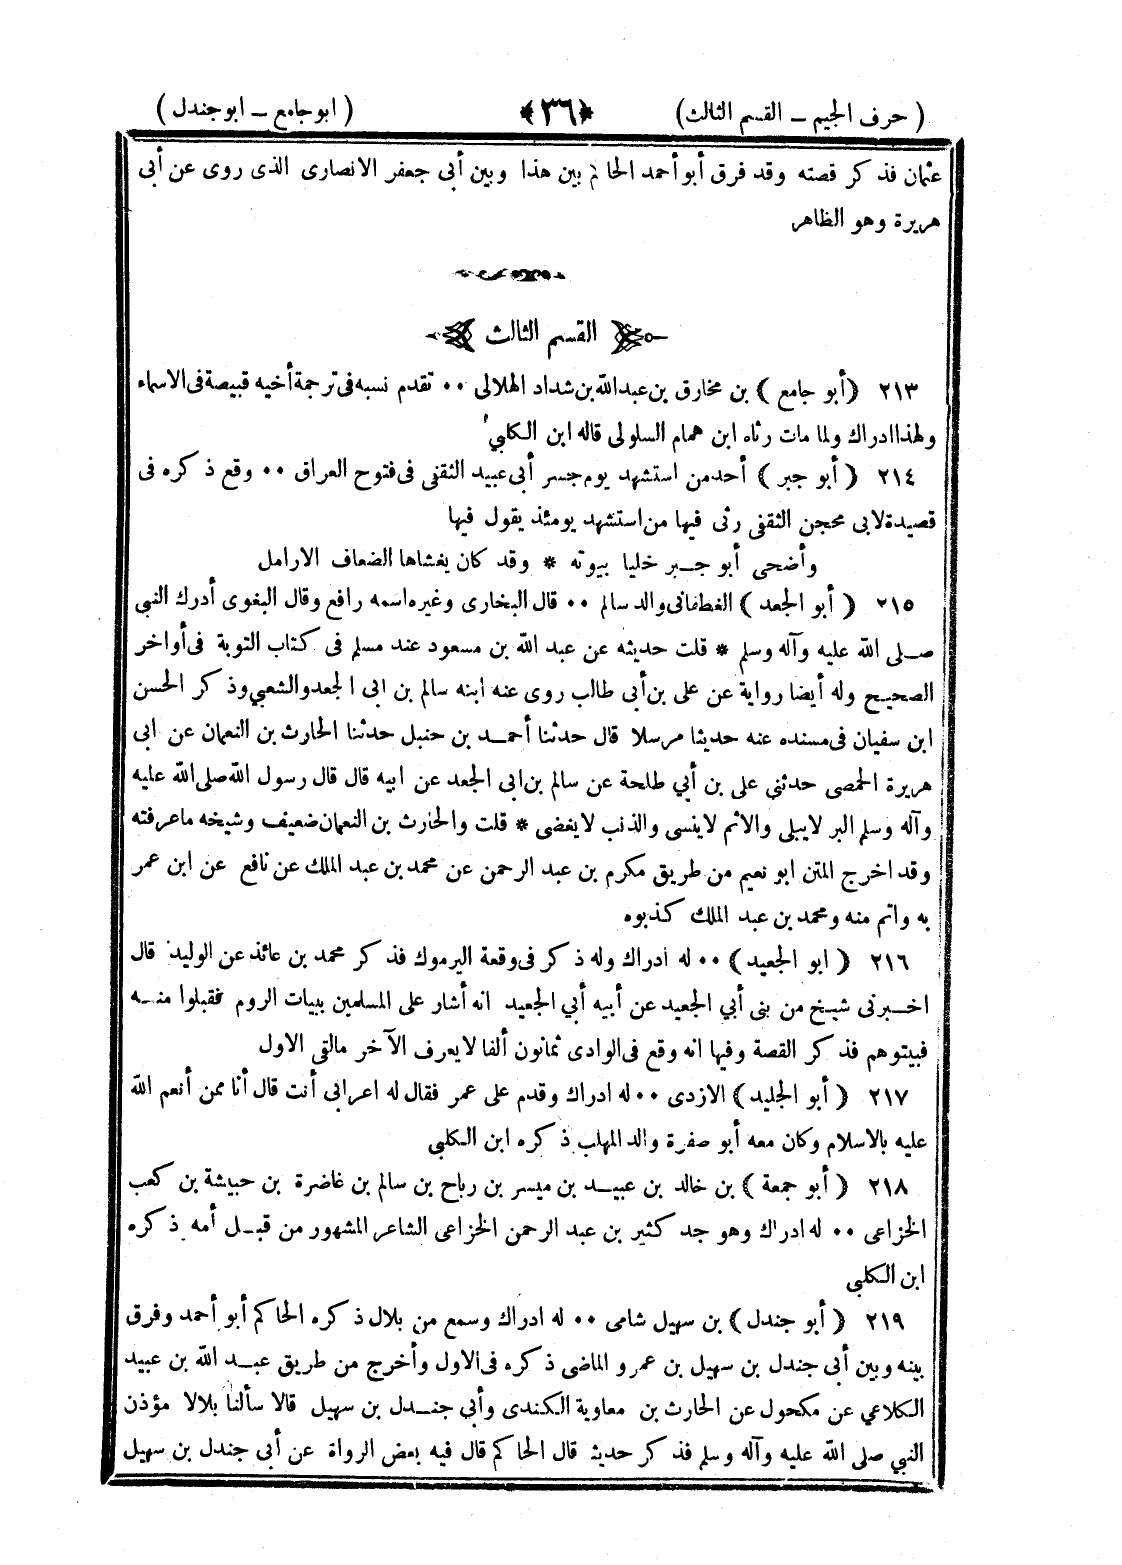 ( حرف الجيم — القسم الثالث ) ﴿٣٦﴾ ( ابو جامع — ابو جندل )
عثمان فذكر قصته وقد فرق أبو أحمد الحاكم بين هذا وبين أبى جعفر الانصارى الذى روى عن أبى
هريرة وهو الظاهر
القسم الثالث
٢١٣ ( أبو جامع ) بن مخارق بن عبدالله بن شداد الهلالى ٠٠ تقدم نسبه فى ترجمة أخيه قبيصة فى الاسماء
ولهذا ادراك ولما مات رثاه ابن همام السلولى قاله ابن الكلبي
٢١٤ ( أبو جبر ) أحد من استشهد يوم جسر أبى عبيد الثقفى فى فتوح العراق ٠٠ وقع ذكره فى
قصيدة لابى محجن الثقفى رثى فيها من استشهد يومئذ يقول فيها
وأضحى أبو جبر خليا بيوته * وقد كان يغشاها الضعاف الارامل
٢١٥ ( أبو الجعد ) الغطفانى والد سالم ٠٠ قال البخارى وغيره اسمه رافع وقال البغوى أدرك النبي
صلى الله عليه وآله وسلم * قلت حديثه عن عبد الله بن مسعود عند مسلم فى كتاب التوبة فى أواخر
الصحيح وله أيضا رواية عن على بن أبى طالب روى عنه ابنه سالم بن ابى الجعد والشعبي وذكر الحسن
ابن سفيان فى مسنده عنه حديثا مرسلا قال حدثنا أحمد بن حنبل حدثنا الحارث بن النعمان عن ابى
هريرة الحمصى حدثني على بن أبي طلحة عن سالم بن ابى الجعد عن ابيه قال قال رسول الله صلى الله عليه
وآله وسلم البر لا يبلى والاثم لا ينسى والذنب لا يغضى * قلت والحارث بن النعمان ضعيف وشيخه ما عرفته
وقد اخرج المتن ابو نعيم من طريق مكرم بن عبد الرحمن عن محمد بن عبد الملك عن نافع عن ابن عمر
به واتم منه ومحمد بن عبد الملك كذبوه
٢١٦ ( ابو الجعيد ) ٠٠ له ادراك وله ذكر فى وقعة اليرموك فذكر محمد بن عائذ عن الوليد قال
اخبرنى شيخ من بنى أبي الجعيد عن أبيه أبي الجعيد انه أشار على المسلمين ببيات الروم فقبلوا منه
فبيتوهم فذكر القصة وفيها انه وقع فى الوادى ثمانون ألفا لا يعرف الآخر مالقى الاول
٢١٧ ( أبو الجليد ) الازدى ٠٠ له ادراك وقدم على عمر فقال له اعرابى أنت قال أنا ممن أنعم الله
عليه بالاسلام وكان معه أبو صفرة والد المهلب ذكره ابن الكلبي
٢١٨ ( أبو جمعة ) بن خالد بن عبيد بن ميسر بن رباح بن سالم بن غاضرة بن حبيشة بن كعب
الخزاعى ٠٠ له ادراك وهو جد كثير بن عبد الرحمن الخزاعى الشاعر المشهور من قبل أمه ذكره
ابن الكلبي
٢١٩ ( أبو جندل ) بن سهيل شامى ٠٠ له ادراك وسمع من بلال ذكره الحاكم أبو أحمد وفرق
بينه وبين أبى جندل بن سهيل بن عمرو الماضى ذكره فى الاول وأخرج من طريق عبد الله بن عبيد
الكلاعي عن مكحول عن الحارث بن معاوية الكندى وأبي جندل بن سهيل قالا سألنا بلالا مؤذن
النبي صلى الله عليه وآله وسلم فذكر حديث قال الحاكم قال فيه بعض الرواة عن أبي جندل بن سهيل